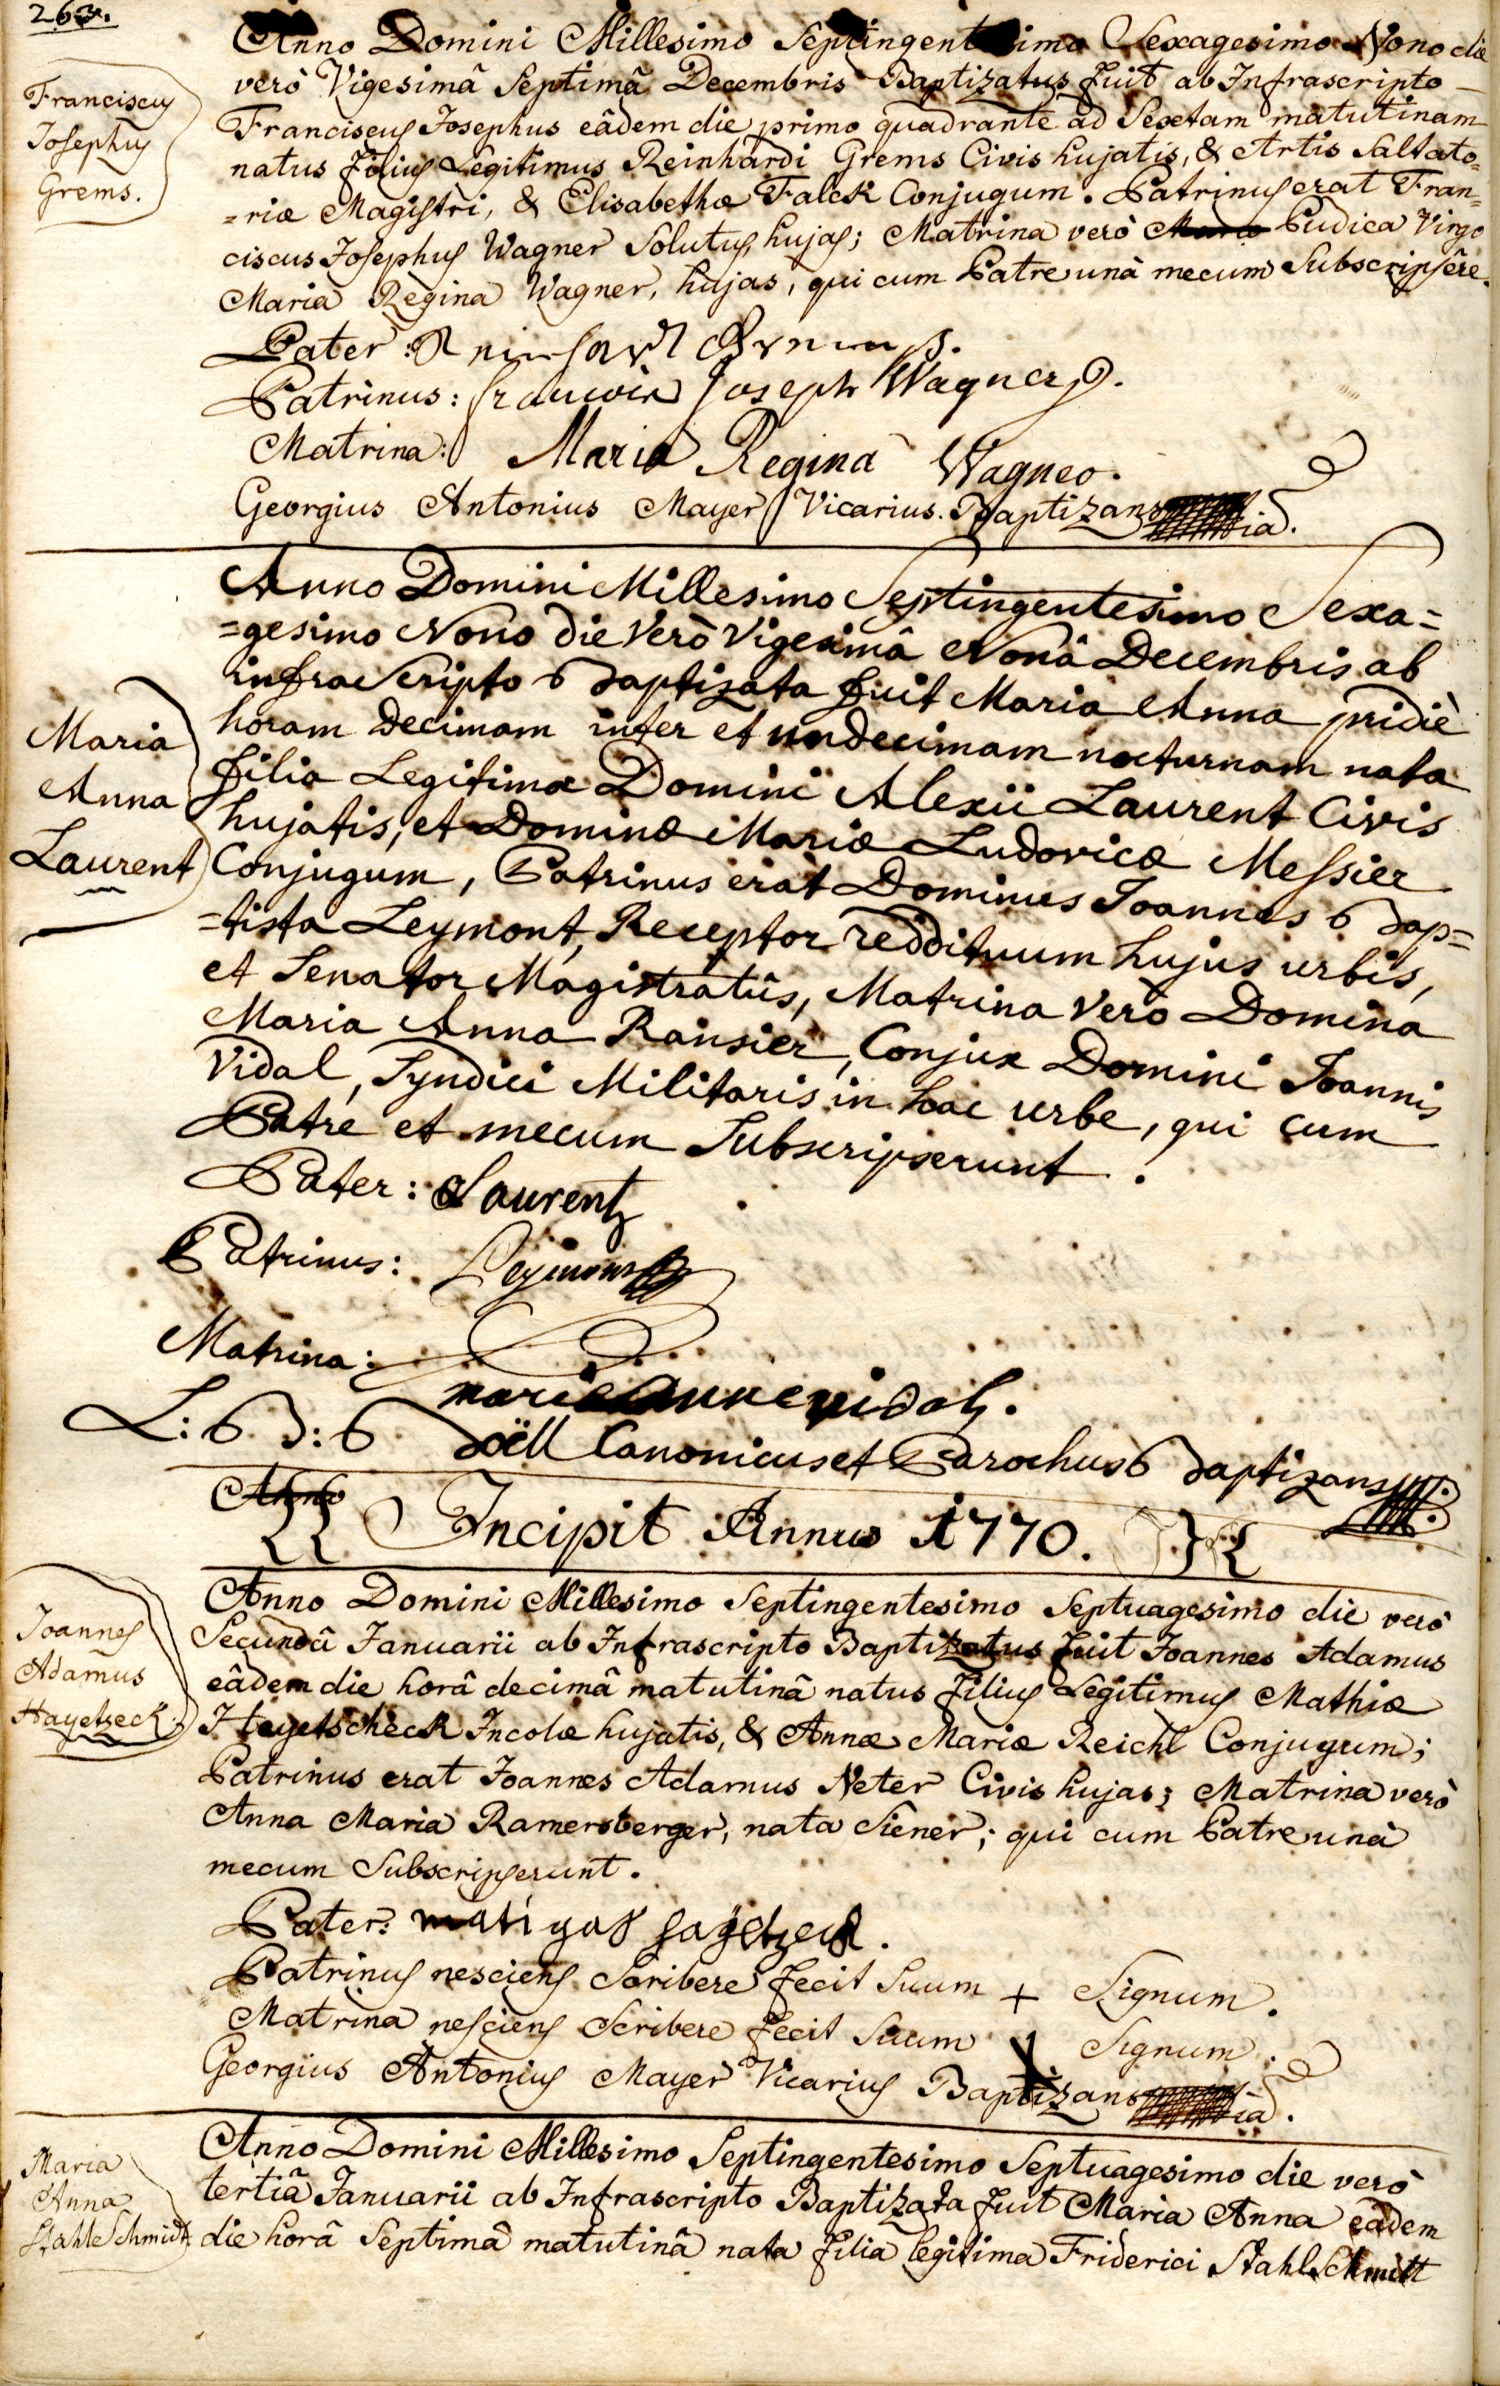 263.
Franciscus
Josephus
Grems.
Anno Domini Millesimo Septingentesimo Sexagesimo Nono die
verò Vigesimâ Septimâ Decembris Baptizatus fuit ab Infrascripto
Franciscus Josephus eâdem die primo quadrante ad Sextam matutinam
natus filius Legitimus Reinhardi Grems Civis hujatis, & Artis Saltato=
=riæ Magistri, & Elisabethæ Falck Conjugum. Patrinus erat Fran=
ciscus Josephus Wagner Solutus, hujas; Matrina verò Maria Pudica Virgo
Maria Regina Wagner, hujas, qui cum Patre unà mecum Subscripsêre.
Pater: Reinhard Grems.
Patrinus: francois Joseph Wagner.
Matrina: Maria Regina Wagner.
Georgius Antonius Mayer Vicarius Baptizans
Maria
Anna
Laurent
Anno Domini Millesimo Septingentesimo Sexa=
=gesimo Nono die Verò Vigesimâ Nonâ Decembris ab
infrascripto Baptizata fuit Maria Anna pridiè
horam decimam inter et undecimam nocturnam nata
filia Legitima Domini Alexii Laurent Civis
hujatis, et Dominæ Mariæ Ludovicæ Messier
Conjugum, Patrinus erat Dominus Joannes Bap=
=tista Leymont, Receptor reddituum hujus urbis,
et Senator Magistratûs, Matrina Verò Domina
Maria Anna Ransier, Conjux Domini Joannis
Vidal, Syndici Militaris in hac urbe, qui cum
Patre et mecum Subscripserunt.
Pater: Laurent
Patrinus: Leymont
Matrina:
marie anne vidal.
L: B: B. Döll Canonicus et Parochus Baptizans
Anno
Incipit Annus 1770.
Joannes
Adamus
Hayetzeck.
Anno Domini Millesimo Septingentesimo Septuagesimo die verò
Secundâ Januarii ab Infrascripto Baptizatus fuit Joannes Adamus
eâdem die horâ decimâ matutinâ natus filius Legitimus Mathiæ
Hayetscheck Incolæ hujatis, & Annæ Mariæ Reichl Conjugum;
Patrinus erat Joannes Adamus Neter Civis hujas; Matrina verò
Anna Maria Ramersberger, nata Siener; qui cum Patre unà
mecum Subscripserunt.
Pater: matigas hagetzeck.
Patrinus nesciens Scribere fecit Suum + Signum.
Matrina nesciens Scribere fecit Suum + Signum.
Georgius Antonius Mayer Vicarius Baptizans
Maria
Anna
StahleSchmidt
Anno Domini Millesimo Septingentesimo Septuagesimo die verò
tertiâ Januarii ab Infrascripto Baptizata fuit Maria Anna eâdem
die horâ Septimâ matutinâ nata filia legitima Friderici StahlSchmitt